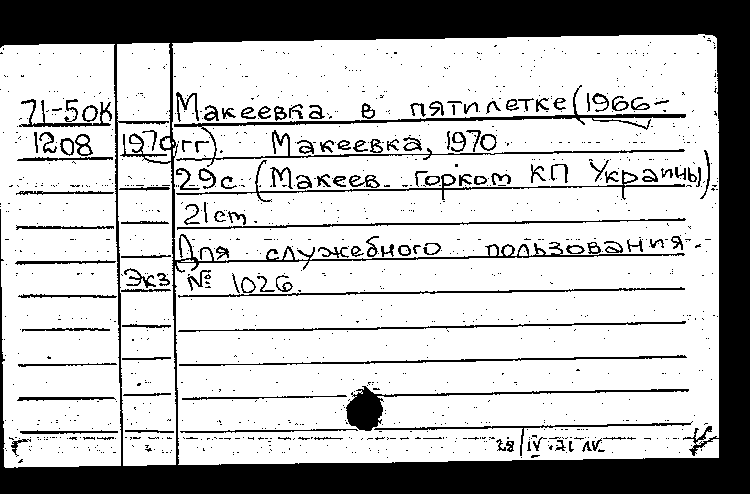 71-50К Макеевка в пятилетке (1966-
1208 1970 гг). Макеевка, 1970.
29с. (Макеев. горком КП Украины)
21cm.
Для служебного пользования.
Экз. № 1026.
28/IV.71